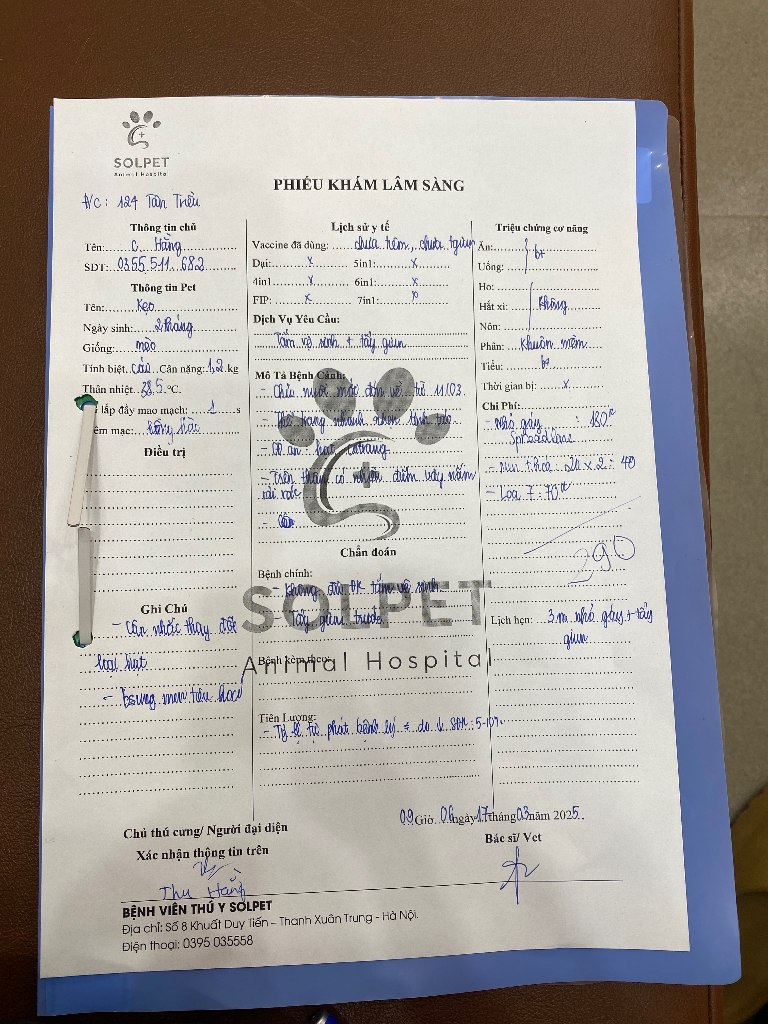 SOLPET
Animal Hospital
PHIẾU KHÁM LÂM SÀNG
Đ/C: 124 Tân Triều
Thông tin chủ
Tên: C. Hằng
SDT: 0355 511 682
Thông tin Pet
Tên: Kẹo
Ngày sinh: 2 tháng
Giống: mèo
Tính biệt: cái Cân nặng: 1,2 kg
Thân nhiệt: 38.5 °C
lấp đầy mao mạch: 1 s
êm mạc: hồng hào
Điều trị
Ghi Chú
- Cân nhắc thay đổi
loại hạt
- bsung men tiêu hoá
Lịch sử y tế
Vaccine đã dùng: chưa tiêm, chưa tgiun
Dại: x 5in1: x
4in1 x 6in1: x
FIP: x 7in1: x
Dịch Vụ Yêu Cầu:
Tắm vệ sinh + tẩy giun
Mô Tả Bệnh Cảnh:
- Chủ nuôi mới đón về từ 11/03
- Thể trạng nhanh nhẹn tỉnh táo
- Đồ ăn: hạt
- Trên thân có nhiều điểm vảy nấm
rải rác
Chẩn đoán
Bệnh chính:
- không đủ ĐK tắm vệ sinh
- Tẩy giun trước
Bệnh kèm theo:
Tiên Lượng:
- Tỷ lệ tự phát bệnh lý do : 5-10%
SOLPET
Animal Hospital
Triệu chứng cơ năng
Ăn: bt
Uống:
Ho:
Hắt xì: không
Nôn:
Phân: khuôn mềm
Tiểu: bt
Thời gian bị: x
Chi Phí:
- Nhỏ gáy : 180k
- Men t.hoá: 20 x 2 = 40
- Loa 7: 70k
290
Lịch hẹn: 3.m nhỏ gáy + tẩy
giun
09 Giờ 06 ngày 17 tháng 03 năm 2025.
Chủ thú cưng/ Người đại diện
Xác nhận thông tin trên
Thu Hằng
Bác sĩ/ Vet
BỆNH VIỆN THÚ Y SOLPET
Địa chỉ: Số 8 Khuất Duy Tiến – Thanh Xuân Trung - Hà Nội.
Điện thoại: 0395 035558